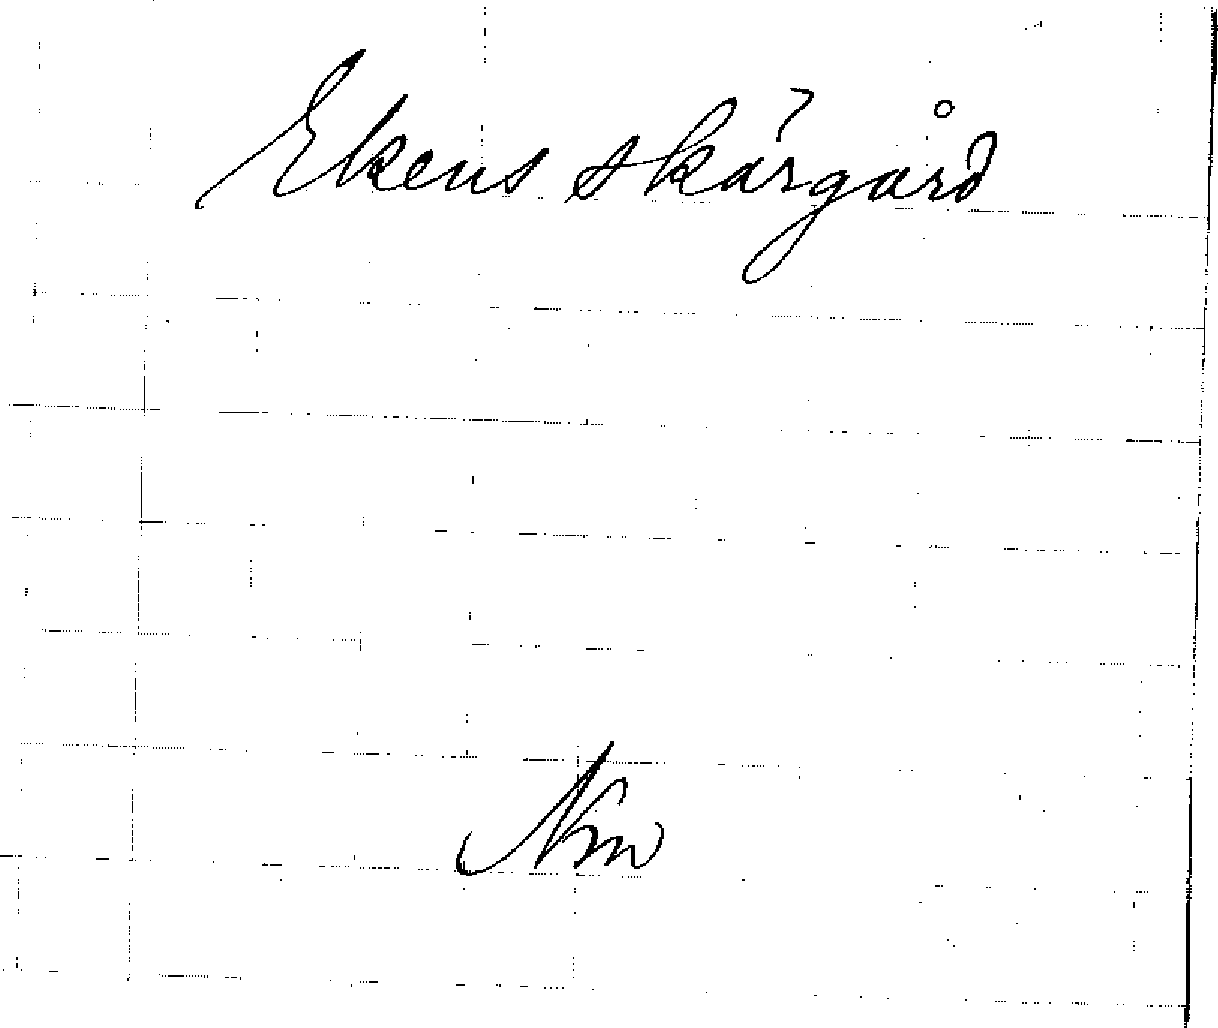 Ekens skärgård
Nm